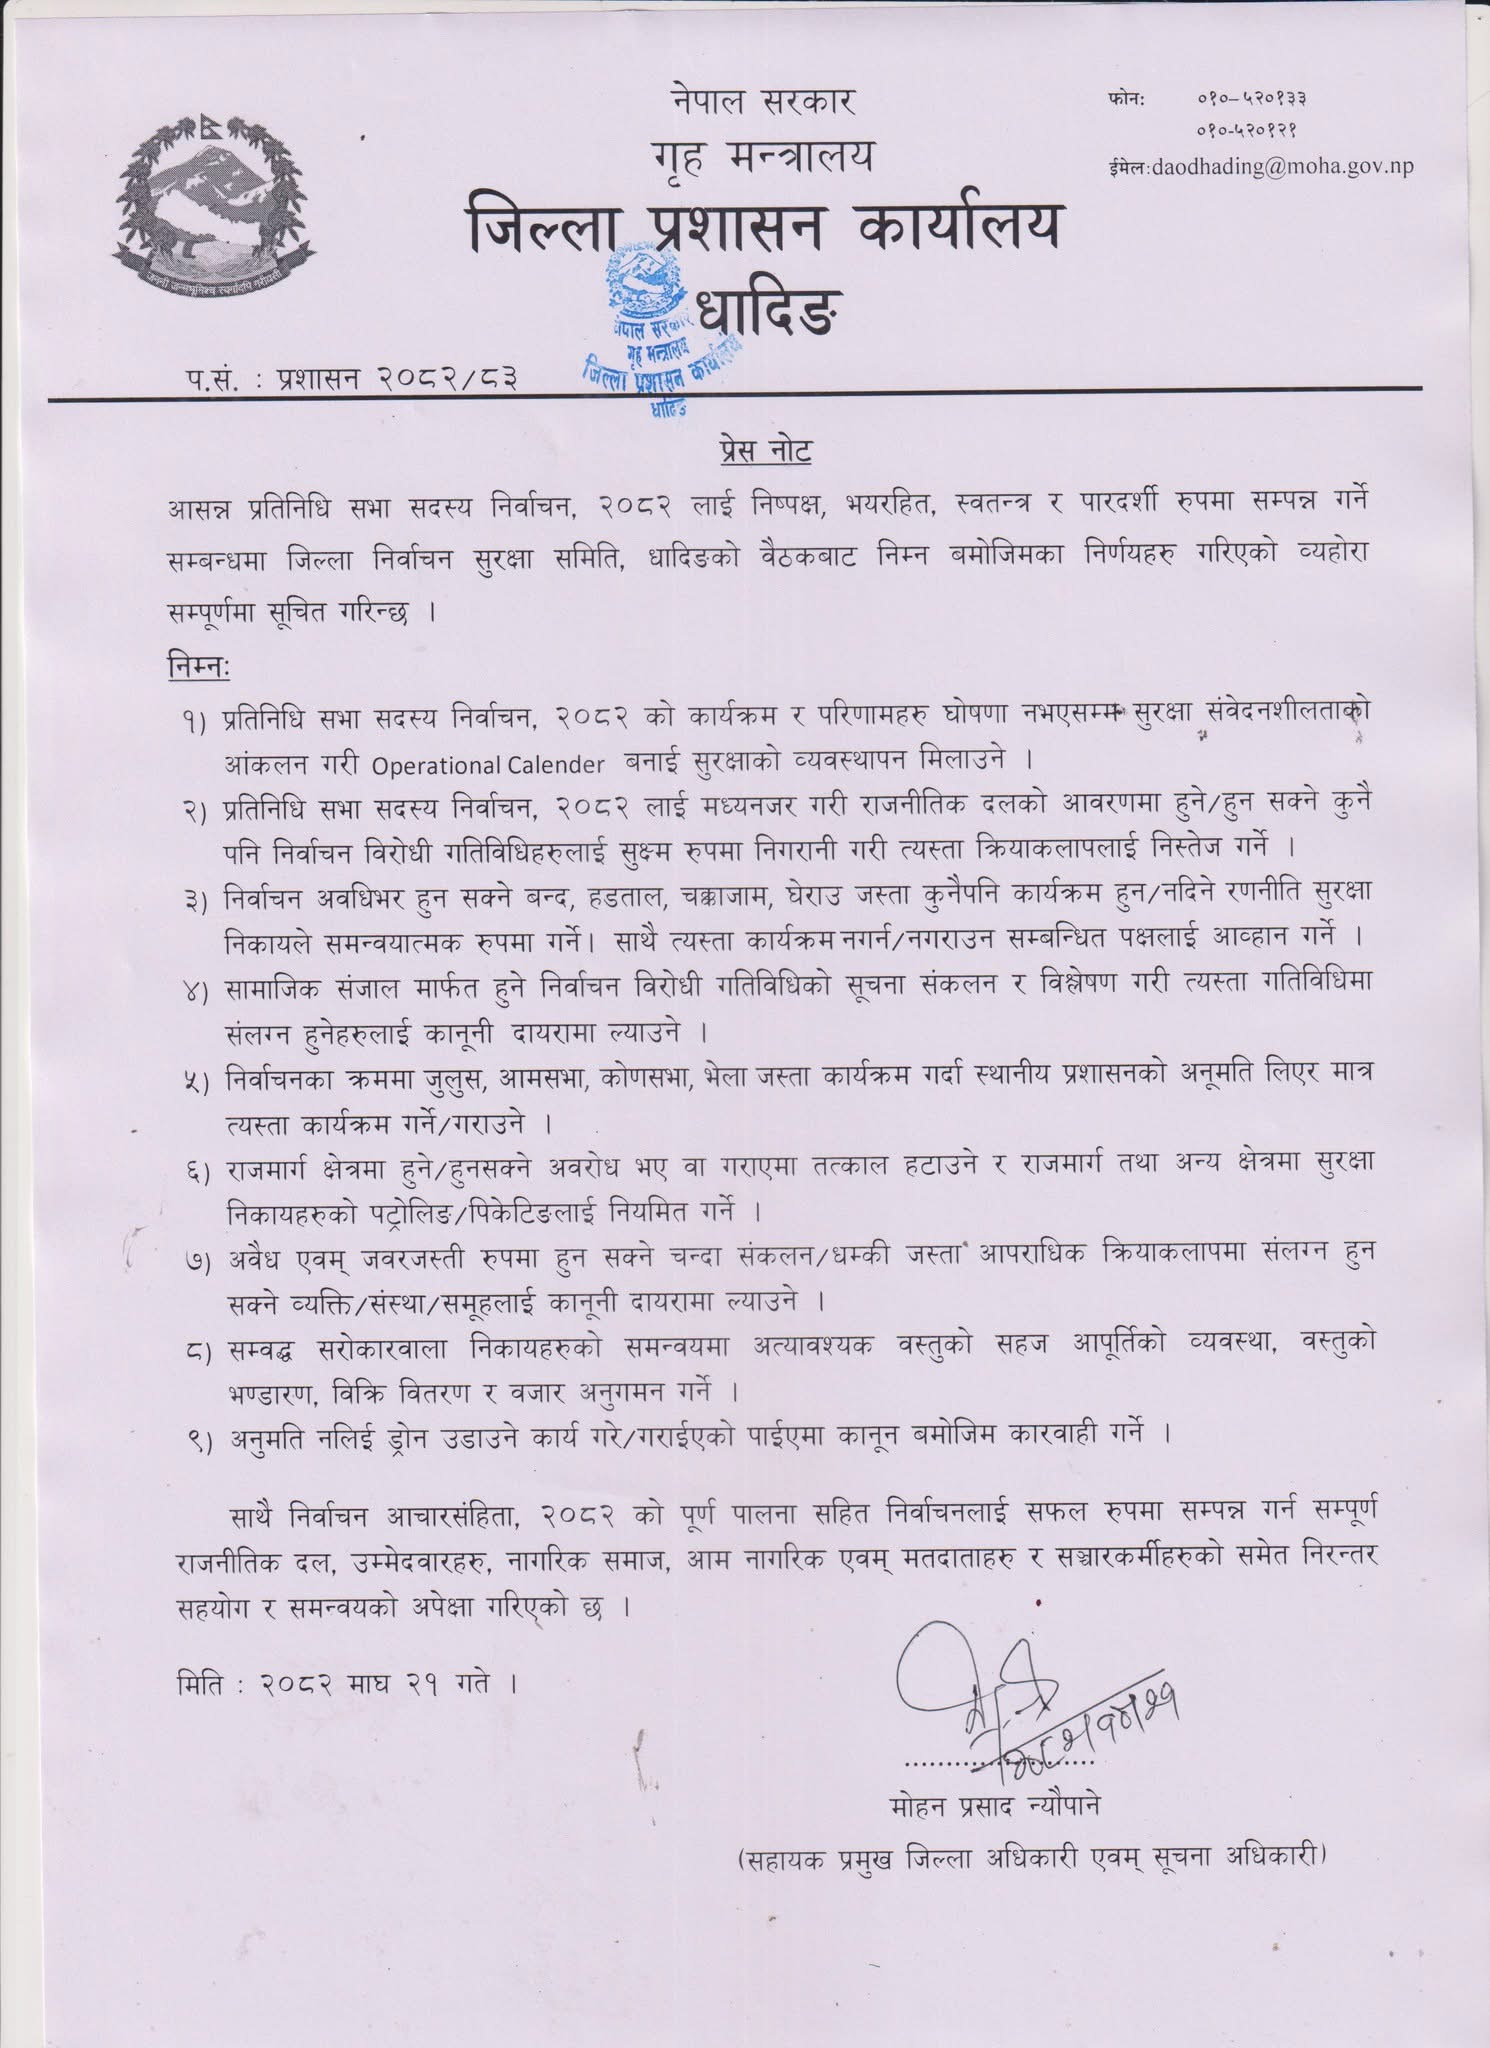 नेपाल सरकार
गृह मन्त्रालय
जिल्ला प्रशासन कार्यालय
धादिङ
फोनः ०१०–५२०१३३
०१०-५२०१२१
ईमेल:daodhading@moha.gov.np
जननी जन्मभूमिश्च स्वर्गादपि गरीयसी
नेपाल सरकार
गृह मन्त्रालय
जिल्ला प्रशासन कार्यालय
धादिङ
प.सं. : प्रशासन २०८२/८३
प्रेस नोट
आसन्न प्रतिनिधि सभा सदस्य निर्वाचन, २०८२ लाई निष्पक्ष, भयरहित, स्वतन्त्र र पारदर्शी रुपमा सम्पन्न गर्ने
सम्बन्धमा जिल्ला निर्वाचन सुरक्षा समिति, धादिङको वैठकबाट निम्न बमोजिमका निर्णयहरु गरिएको व्यहोरा
सम्पूर्णमा सूचित गरिन्छ ।
निम्नः
१) प्रतिनिधि सभा सदस्य निर्वाचन, २०८२ को कार्यक्रम र परिणामहरु घोषणा नभएसम्म सुरक्षा संवेदनशीलताको
आंकलन गरी Operational Calender बनाई सुरक्षाको व्यवस्थापन मिलाउने ।
२) प्रतिनिधि सभा सदस्य निर्वाचन, २०८२ लाई मध्यनजर गरी राजनीतिक दलको आवरणमा हुने/हुन सक्ने कुनै
पनि निर्वाचन विरोधी गतिविधिहरुलाई सुक्ष्म रुपमा निगरानी गरी त्यस्ता क्रियाकलापलाई निस्तेज गर्ने ।
३) निर्वाचन अवधिभर हुन सक्ने बन्द, हडताल, चक्काजाम, घेराउ जस्ता कुनैपनि कार्यक्रम हुन/नदिने रणनीति सुरक्षा
निकायले समन्वयात्मक रुपमा गर्ने। साथै त्यस्ता कार्यक्रम नगर्न/नगराउन सम्बन्धित पक्षलाई आव्हान गर्ने ।
४) सामाजिक संजाल मार्फत हुने निर्वाचन विरोधी गतिविधिको सूचना संकलन र विश्लेषण गरी त्यस्ता गतिविधिमा
संलग्न हुनेहरुलाई कानूनी दायरामा ल्याउने ।
५) निर्वाचनका क्रममा जुलुस, आमसभा, कोणसभा, भेला जस्ता कार्यक्रम गर्दा स्थानीय प्रशासनको अनूमति लिएर मात्र
त्यस्ता कार्यक्रम गर्ने/गराउने ।
६) राजमार्ग क्षेत्रमा हुने/हुनसक्ने अवरोध भए वा गराएमा तत्काल हटाउने र राजमार्ग तथा अन्य क्षेत्रमा सुरक्षा
निकायहरुको पट्रोलिङ/पिकेटिङलाई नियमित गर्ने ।
७) अवैध एवम् जवरजस्ती रुपमा हुन सक्ने चन्दा संकलन/धम्की जस्ता आपराधिक क्रियाकलापमा संलग्न हुन
सक्ने व्यक्ति/संस्था/समूहलाई कानूनी दायरामा ल्याउने ।
८) सम्वद्ध सरोकारवाला निकायहरुको समन्वयमा अत्यावश्यक वस्तुको सहज आपूर्तिको व्यवस्था, वस्तुको
भण्डारण, विक्रि वितरण र वजार अनुगमन गर्ने ।
९) अनुमति नलिई ड्रोन उडाउने कार्य गरे/गराईएको पाईएमा कानून बमोजिम कारवाही गर्ने ।
साथै निर्वाचन आचारसंहिता, २०८२ को पूर्ण पालना सहित निर्वाचनलाई सफल रुपमा सम्पन्न गर्न सम्पूर्ण
राजनीतिक दल, उम्मेदवारहरु, नागरिक समाज, आम नागरिक एवम् मतदाताहरु र सञ्चारकर्मीहरुको समेत निरन्तर
सहयोग र समन्वयको अपेक्षा गरिएको छ ।
मिति : २०८२ माघ २१ गते ।
मोहन प्रसाद न्यौपाने
(सहायक प्रमुख जिल्ला अधिकारी एवम् सूचना अधिकारी)